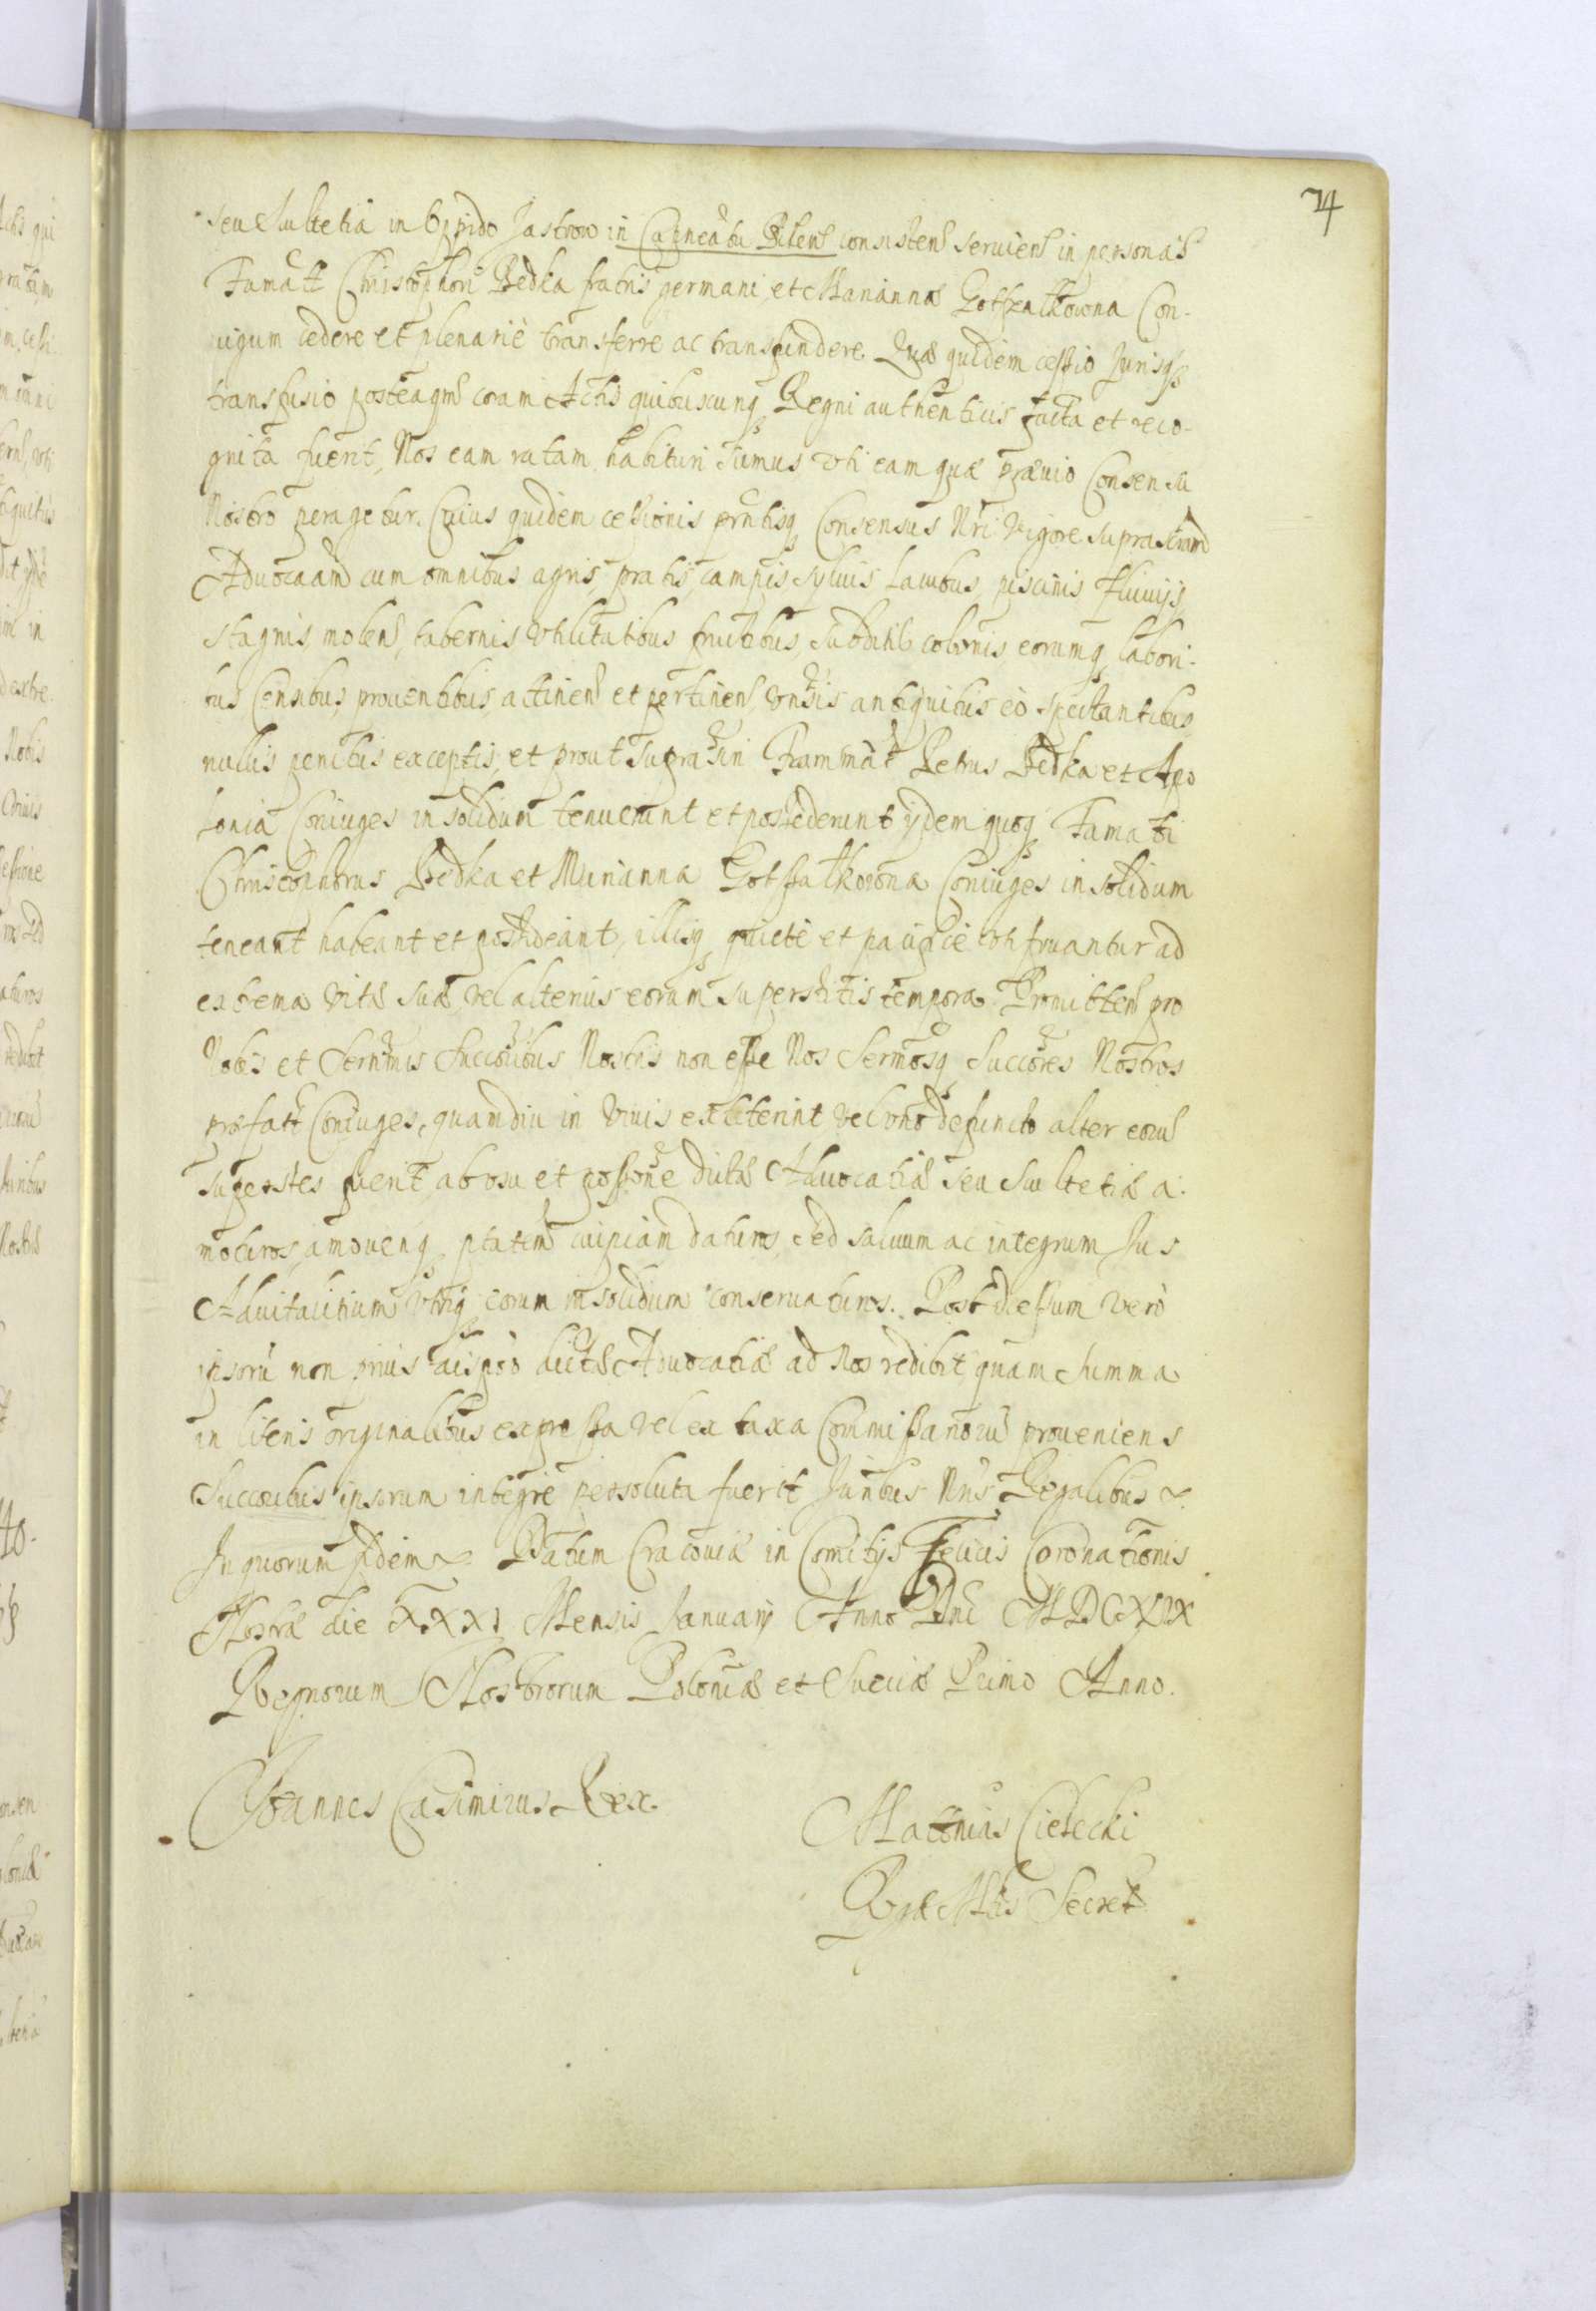 74
seu Scultetiã in Oppido Jastrow in Capneatu Vȧlcen consisten seruien in personas
Famat Christophori Bedka fratris germani et Mariannæ Gotszalkowna Con-
iugum cedere et plenariè transferre ac transfundere. Quæ quidem cessio Jurisq
transfusio posteaqm coram Actis quibuscunq Regni authenticis facta et reco-
gnita fuerit, Nos eam ratam habituri sumus vti eam quæ præuio Consensu
Nostro peragetur. Cuius quidem cessionis prntisq Consensus Nri vigore suprascram
Aduocaam cum omnibus agris, pratis, campis, syluis, Lacubus, piscinis, fluuijs,
stagnis, molen, tabernis vtilitatibus fructibus, subditis colonis eorumq labori-
bus Censibus, prouentibus, attinen et pertinen, vnsis antiquitus eò spectantibus,
nullis penitus exceptis, et prout supra Famat Petrus Bedka et Apo
lonia Coniuges in solidum tenuerunt et possederunt ijdem quoq Famati
Christophorus Bedka et Marianna Gotszalkowna Coniuges in solidum
teneant habeant et possideant, illisq quietè et pacificè vtifruantur ad
extrema vitæ suæ vel alterius eorum superstitis tempora. Promitten pro
Nobis et Sernmis Succoribus Nostris non esse Nos Sermosq Succores Nostros
præfat Coniuges, quamdiu in viuis extiterint, vel vno defuncto alter eorum
superstes fuerit, ab vsu et possone dictæ Aduocatiæ seu Scultetiæ a-
moturos, amouenq ptatem cuipiam daturos, sed saluum ac integrum Jus
Aduitalitium vtriq eorum in solidum conseruaturos. Post decessum verò
ipsorũ non prius dictæ Aduocatiæ ad Nos redibit, quam Summa
in literis originalibus expressa vel ex taxa Commissariorũ proueniens
Succoribus ipsorum integrè persoluta fuerit Juribus Nris Regalibus
In quorum fidem. Datum Cracouiæ in Comitijs Felicis Coronationis
Nostræ die XXXI Mensis January Anno Dni MDCXLIX
Regnorum Nostrorum Poloniæ et Sueciæ Primo Anno.
Joannes Casimirus Rex.
Mathias Cielecki
Rgiæ Mtis Secret